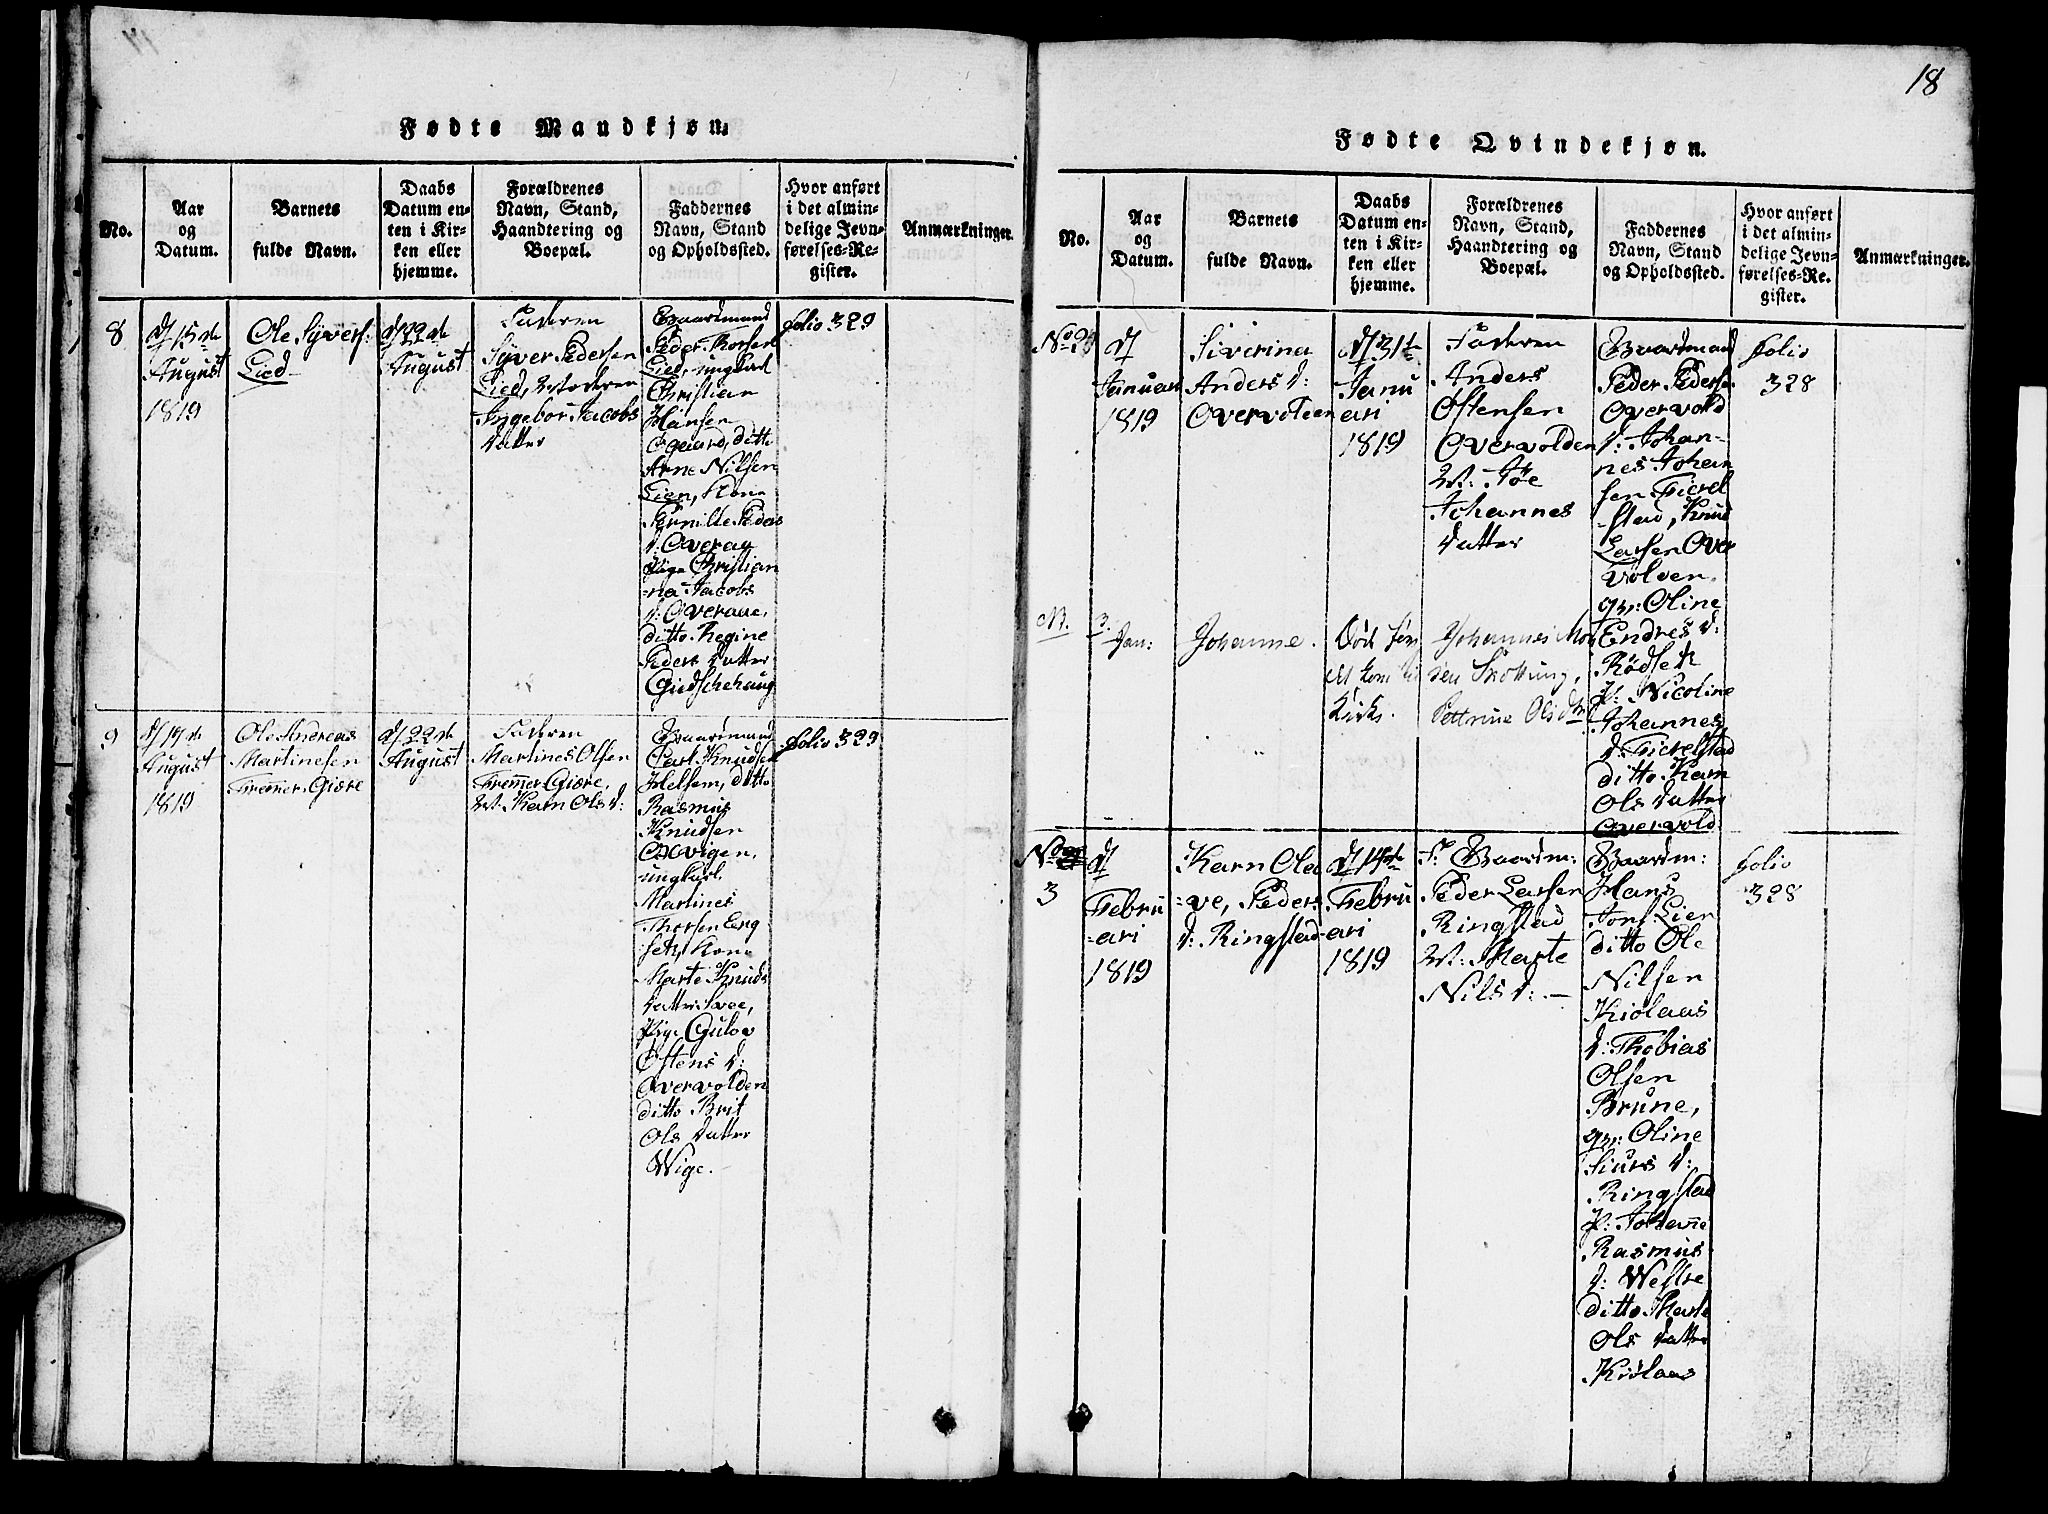 18
Fødte Mandkjøn.
No.
Aar
og
Datum.
Barnets
fulde Navn.
Daabs
Datum en-
ten i Kir-
ken eller
hjemme.
Forældrenes
Navn, Stand,
Haandtering og
Boepæl.
Faddernes
Navn, Stand
og Opholdssted.
Hvor anført
i det almin-
delige Jevn-
førelses-Re-
gister.
Anmærkninger.
8
d/ 15de
August
1819
Ole Syvers:
Lied
d/ 22de
August
Faderen
Syver Pedersen
Lied, Moderen
Ingebor Jacobs
datter
Gaardmand
Peder Thorsen
Lied, ungkarl
Christian
Hansen
ditto
Arne Nilsen
Lien, Kone
Pernille Peders
d: Overaa
Pige Christian
-na Jacobs
d: Overaae,
ditto Regine
Peders datter
Giedschehaug
folio 329
9
d/ 19de
August
1819
Ole Andreas
Martinesen
Fremer Giære
d/ 22de
August
Faderen
Martines Olsen
Fremer Giære,
M. Karn Ols d:
Gaardmand
Carl Knudsen
Helsem, ditto
Rasmus
Knudsen
ungkarl
Martines
Thorsen Eeg
seth, Kone
Marte Knuds
datter
Pige Gulov
Ostens d:
Overvolden
ditto Brit
Ols datter
Wige.
folio 329
Fødte Qvindekjøn.
No.
Aar
og
Datum.
Barnets
fulde Navn.
Daabs
Datum en-
ten i Kir-
ken eller
hjemme.
Forældrenes
Navn, Stand,
Haandtering og
Boepæl.
Faddernes
Navn, Stand
og Opholdssted.
Hvor anført
i det almin-
delige Jevn-
førelses-Re-
gister.
Anmærkninger.
No 2
d/
Januari
1819
Siverina
Anders d:
Overvolden
d/ 31te
Janu
ari
1819
Faderen
Anders
Ostensen
Overvolden
M: Iøe
Johannes
datter
Gaardmand
Peder Pedersen
Overvold
d: Johan-
nes Johan
sen Fickel
-stad, Knud
Larsen Over
volden,
gm: Oline
Endres d:
Rödseth
p: Nicoline
Johannes
d: Fickelstad
ditto Karn
Ols datter
Overvold
folio
328
3.
Jan:
Johanne.
Død før
det kom til
Kirke.
Johannes
den
Pettrine Olsd
No
3
d/
Febru
-ari
1819
Karn Olea
-ve, Peders
d: Ringstad
d/ 14de
Febru
ari
1819
F: Gaardm:
Peder Larsen
Ringstad
M: Marte
Nils d: -
Gaardm:
Hans
Jons Lien
ditto Ole
Nilsen
Kiölaas
d: Thobias
Olsen
Brune,
gm: Oline
Siurs d:
Ringstad
p: Johane
Rasmus
d: Westre
ditto Marte
Ols datter
Kiölaas
folio
328